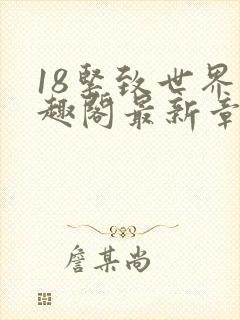 18坚致世界
趣阁最新章
詹某尚